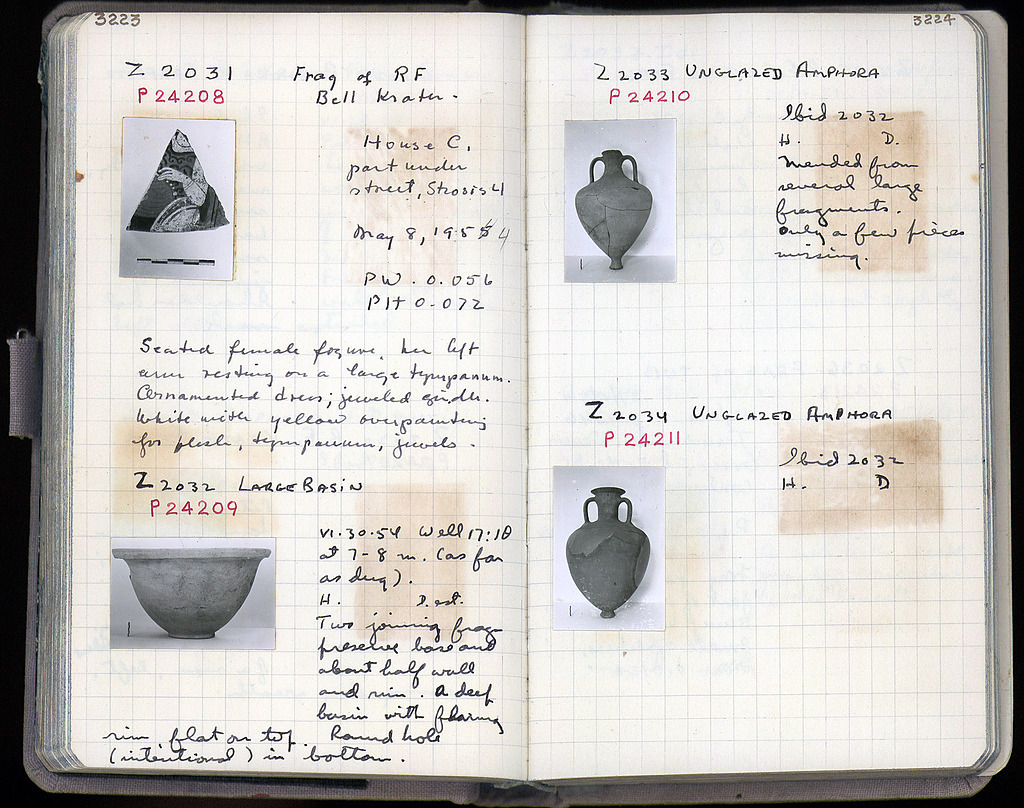 3223
Z 2031 Frag of RF
P 24208 Bell Krater.
House C,
part under
street, Strosis 4
May 8, 1955 4
PW. 0.056
PH 0.072
Seated female figure, her left
arm resting on a large tympanum.
Ornamented dress; jeweled girdle.
White with yellow overpainting
for flesh, tympanum, jewels.
Z 2032 LARGE BASIN
P 24209
VI.30.54 Well 17:18
at 7-8 m. (as far
as dug).
H. D. est.
Two joining frag
preserve base and
about half wall
and rim. A deep
basin with flaring
rim flat on top. Round hole
(intentional) in bottom.
3224
Z 2033 UNGLAZED AMPHORA
P 24210
Ibid 2032
H. D.
Mended from
several large
fragments.
Only a few pieces
missing.
Z 2034 UNGLAZED AMPHORA
P 24211
Ibid 2032
H. D